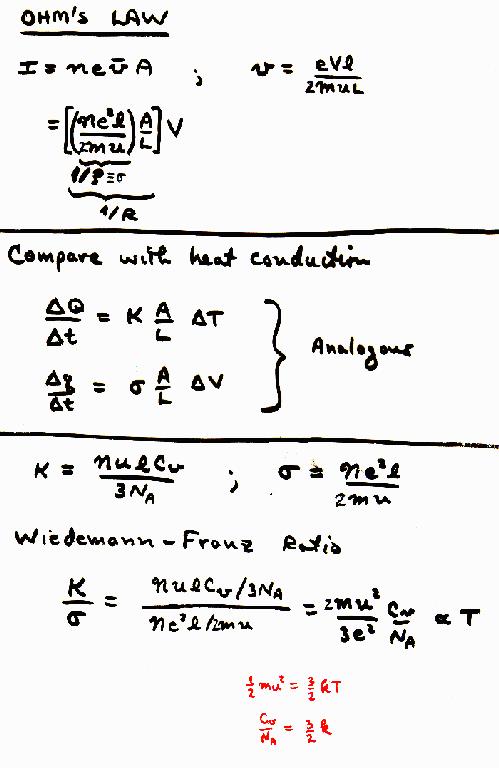 OHM'S LAW
I = nev̄A ; v = eVl/2muL
= [(ne²l/2mu) A/L] V
1/ρ ≡ σ
1/R
Compare with heat conduction
ΔQ/Δt = K A/L ΔT
Δq/Δt = σ A/L ΔV
} Analogous
K = nulCv/3N_A ; σ = ne²l/2mu
Wiedemann-Franz Ratio
K/σ = (nulCv/3N_A)/(ne²l/2mu) = 2mu²/3e² Cv/N_A ∝ T
½ mu² = 3/2 kT
Cv/N_A = 3/2 k